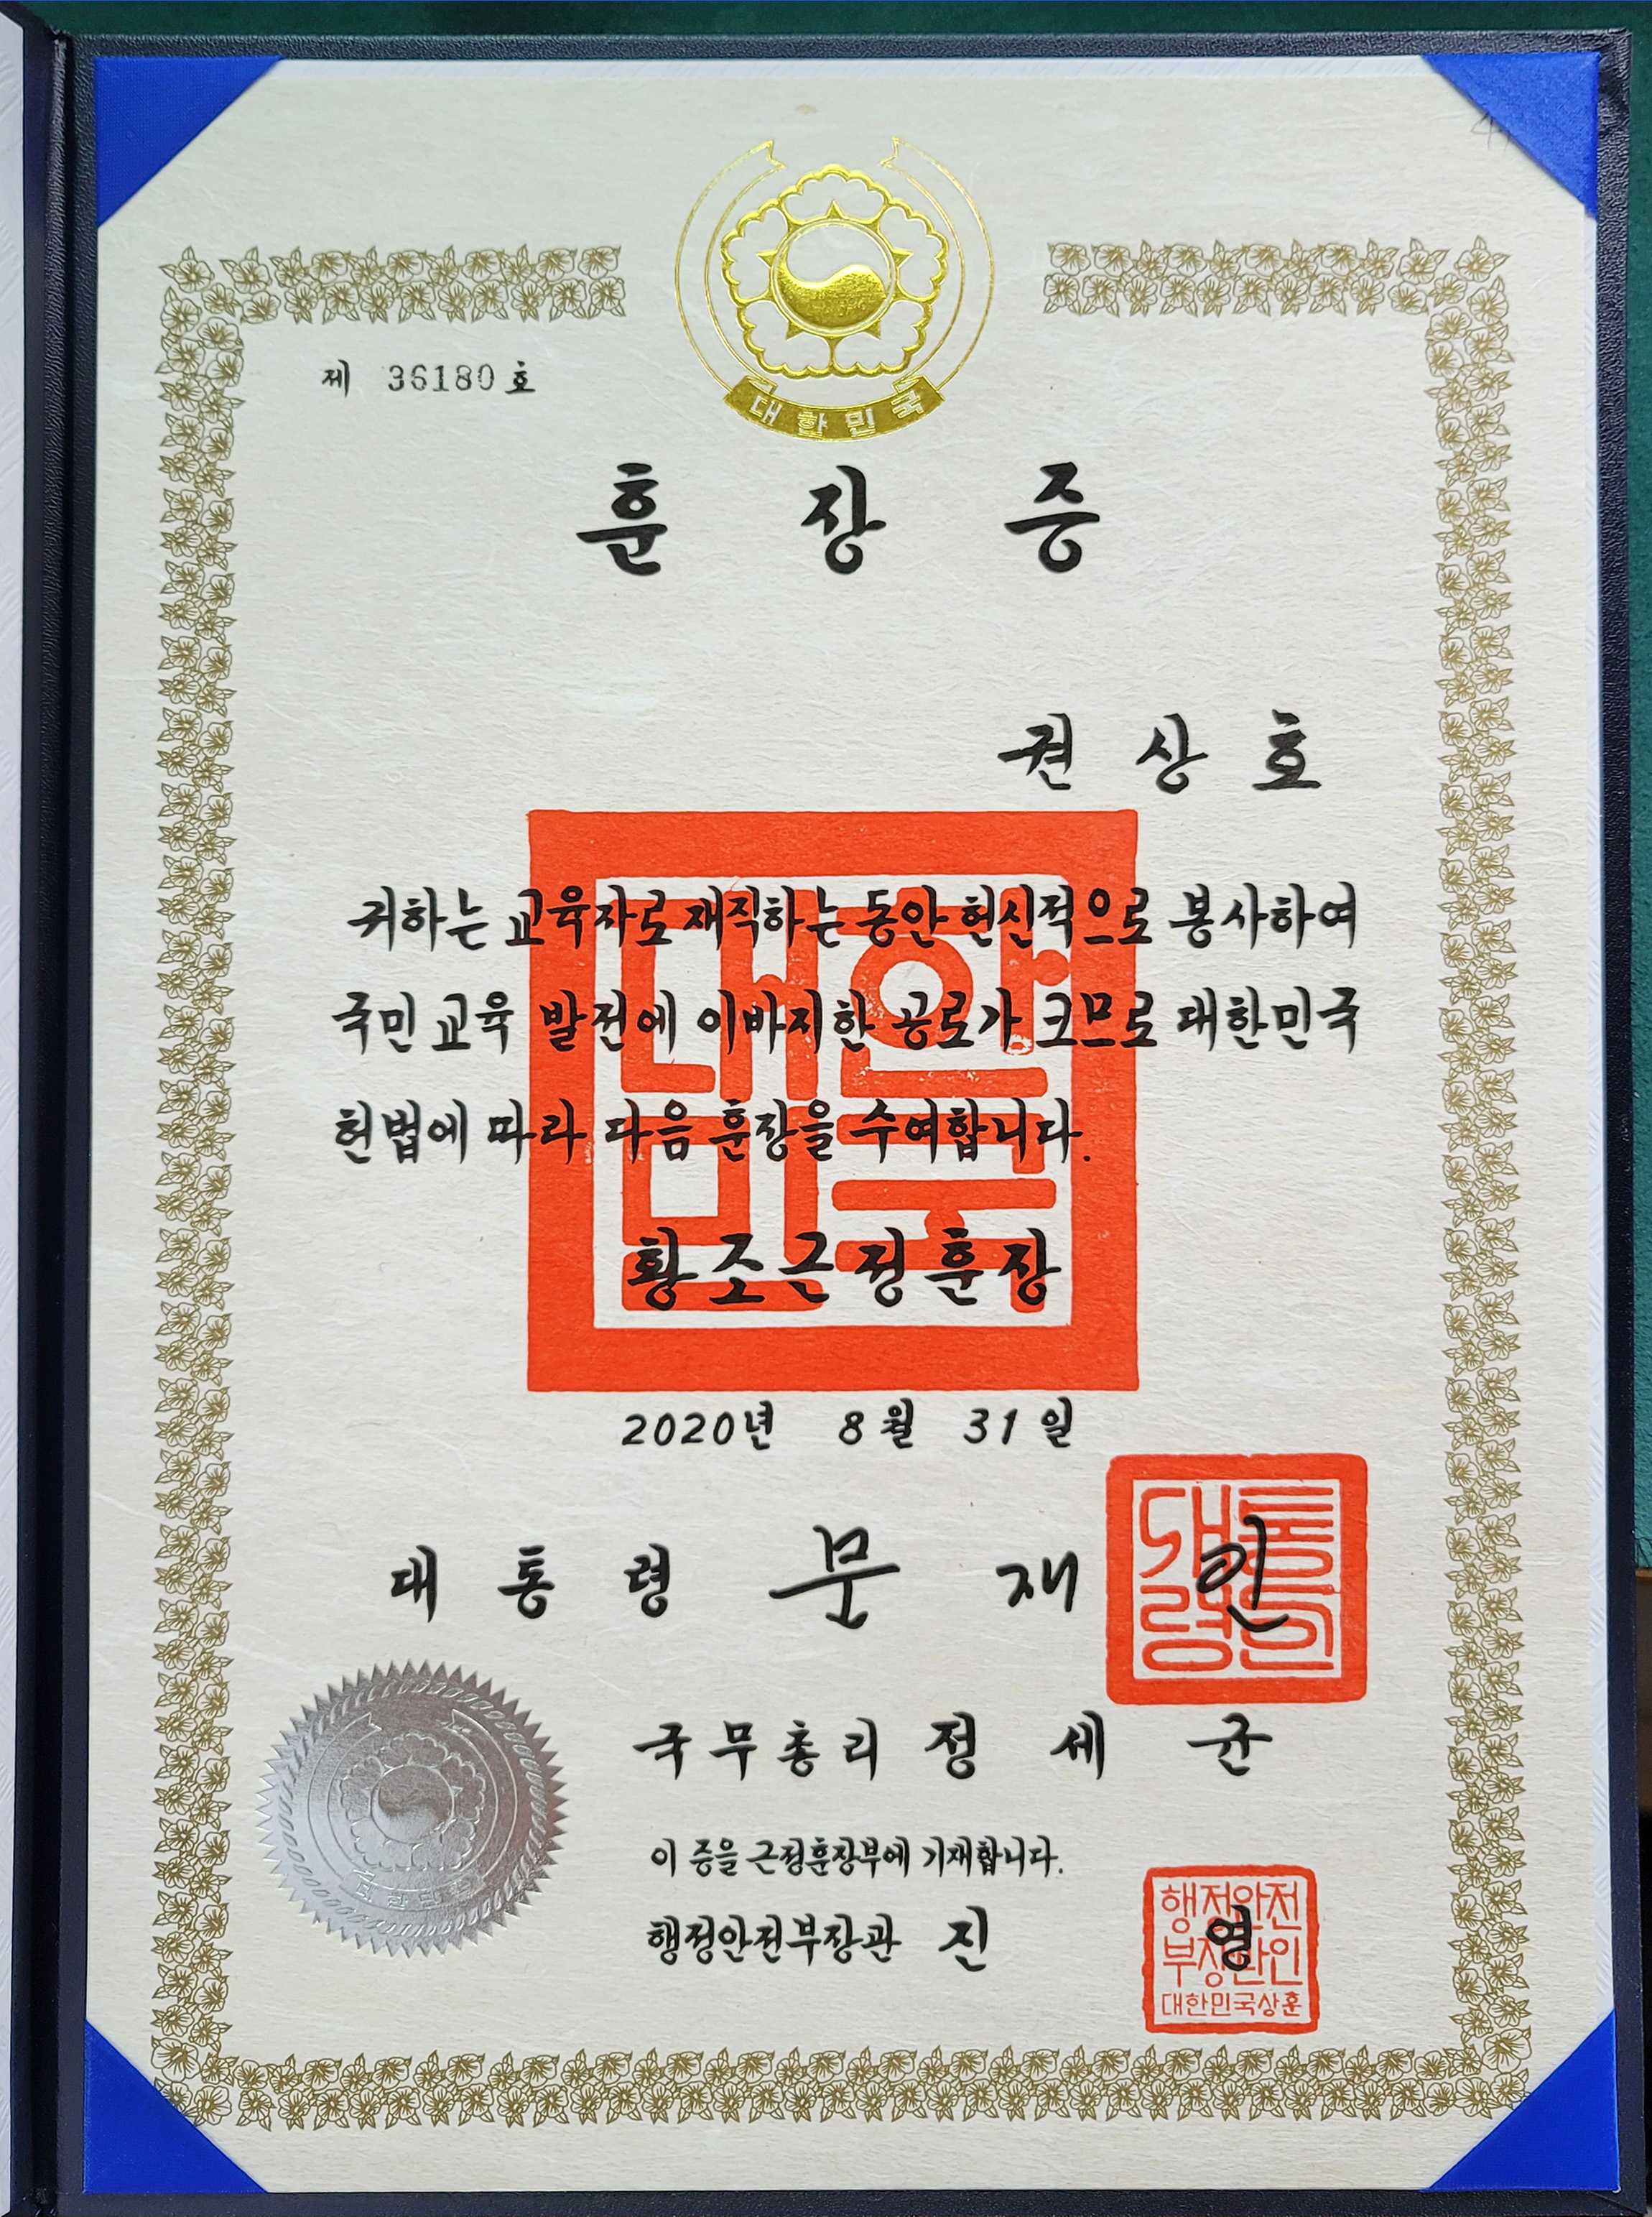 대한민국
제 36180 호
훈장증
권상호
귀하는 교육자로 재직하는 동안 헌신적으로 봉사하여
국민 교육 발전에 이바지한 공로가 크므로 대한민국
헌법에 따라 다음 훈장을 수여합니다.
황조근정훈장
대한
민국
2020년 8월 31일
대통령 문재인
대통
령인
국무총리 정세균
대한민국
이 증을 근정훈장부에 기재합니다.
행정안전부장관 진영
행정안전
부장관인
대한민국상훈